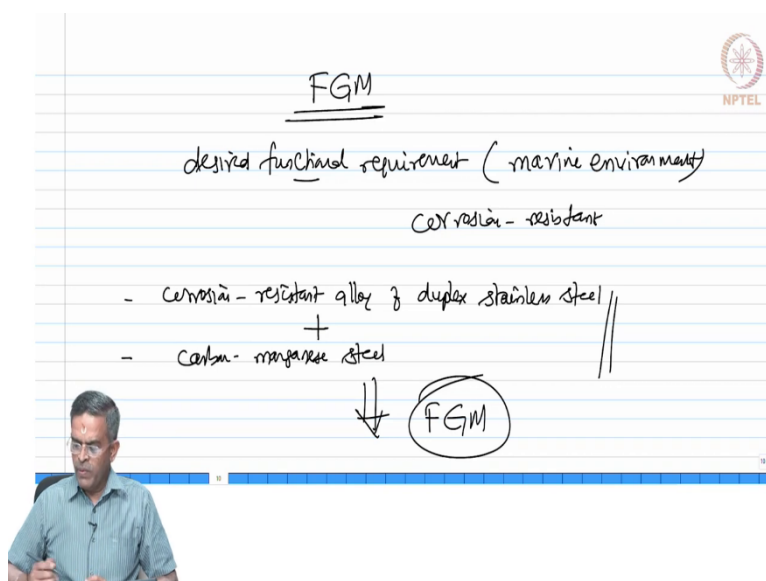 FGM
NPTEL
desired functional requirement (marine environment)
corrosion - resistant
- corrosion - resistant alloy of duplex stainless steel
+
- carbon - manganese steel
FGM
10
10